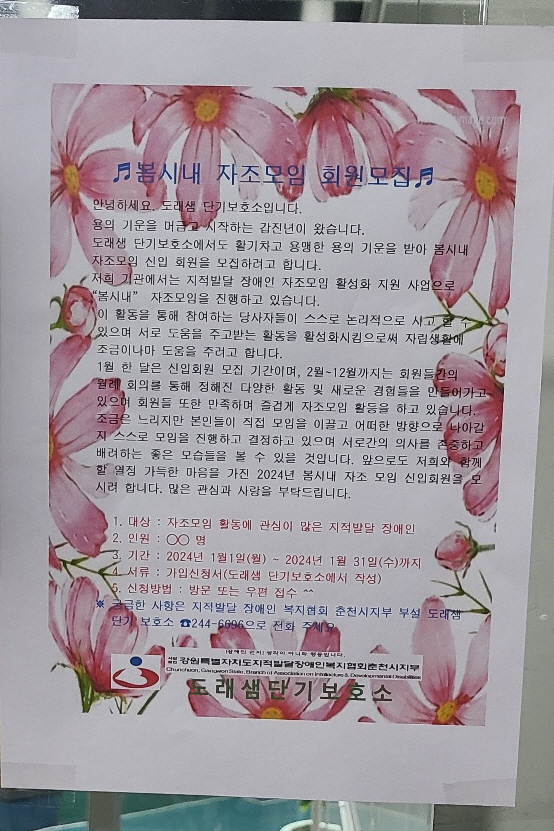 ♬봄시내 자조모임 회원모집♬
안녕하세요. 도래샘 단기보호소입니다.
용의 기운을 머금고 시작하는 갑진년이 왔습니다.
도래샘 단기보호소에서도 활기차고 용맹한 용의 기운을 받아 봄시내
자조모임 신입 회원을 모집하려고 합니다.
저희 기관에서는 지적발달 장애인 자조모임 활성화 지원 사업으로
“봄시내” 자조모임을 진행하고 있습니다.
이 활동을 통해 참여하는 당사자들이 스스로 논리적으로 사고 할 수
있으며 서로 도움을 주고받는 활동을 활성화시킴으로써 자립생활에
조금이나마 도움을 주려고 합니다.
1월 한 달은 신입회원 모집 기간이며, 2월~12월까지는 회원들간의
월례 회의를 통해 정해진 다양한 활동 및 새로운 경험들을 만들어가고
있으며 회원들 또한 만족하며 즐겁게 자조모임 활동을 하고 있습니다.
조금은 느리지만 본인들이 직접 모임을 이끌고 어떠한 방향으로 나아갈
지 스스로 모임을 진행하고 결정하고 있으며 서로간의 의사를 존중하고
배려하는 좋은 모습들을 볼 수 있을 것입니다. 앞으로도 저희와 함께
할 열정 가득한 마음을 가진 2024년 봄시내 자조 모임 신입회원을 모
시려 합니다. 많은 관심과 사랑을 부탁드립니다.
1. 대상 : 자조모임 활동에 관심이 많은 지적발달 장애인
2. 인원 : ○○ 명
3. 기간 : 2024년 1월1일(월) ~ 2024년 1월 31일(수)까지
4. 서류 : 가입신청서(도래샘 단기보호소에서 작성)
5. 신청방법 : 방문 또는 우편 접수 ^^
※ 궁금한 사항은 지적발달 장애인 복지협회 춘천시지부 부설 도래샘
단기 보호소 ☎244-6696으로 전화 주세요.
강원특별자치도지적발달장애인복지협회춘천시지부
Chuncheon, Gangwon State, Branch of Association on Intellecture & Developmental Disabilities
도래샘단기보호소